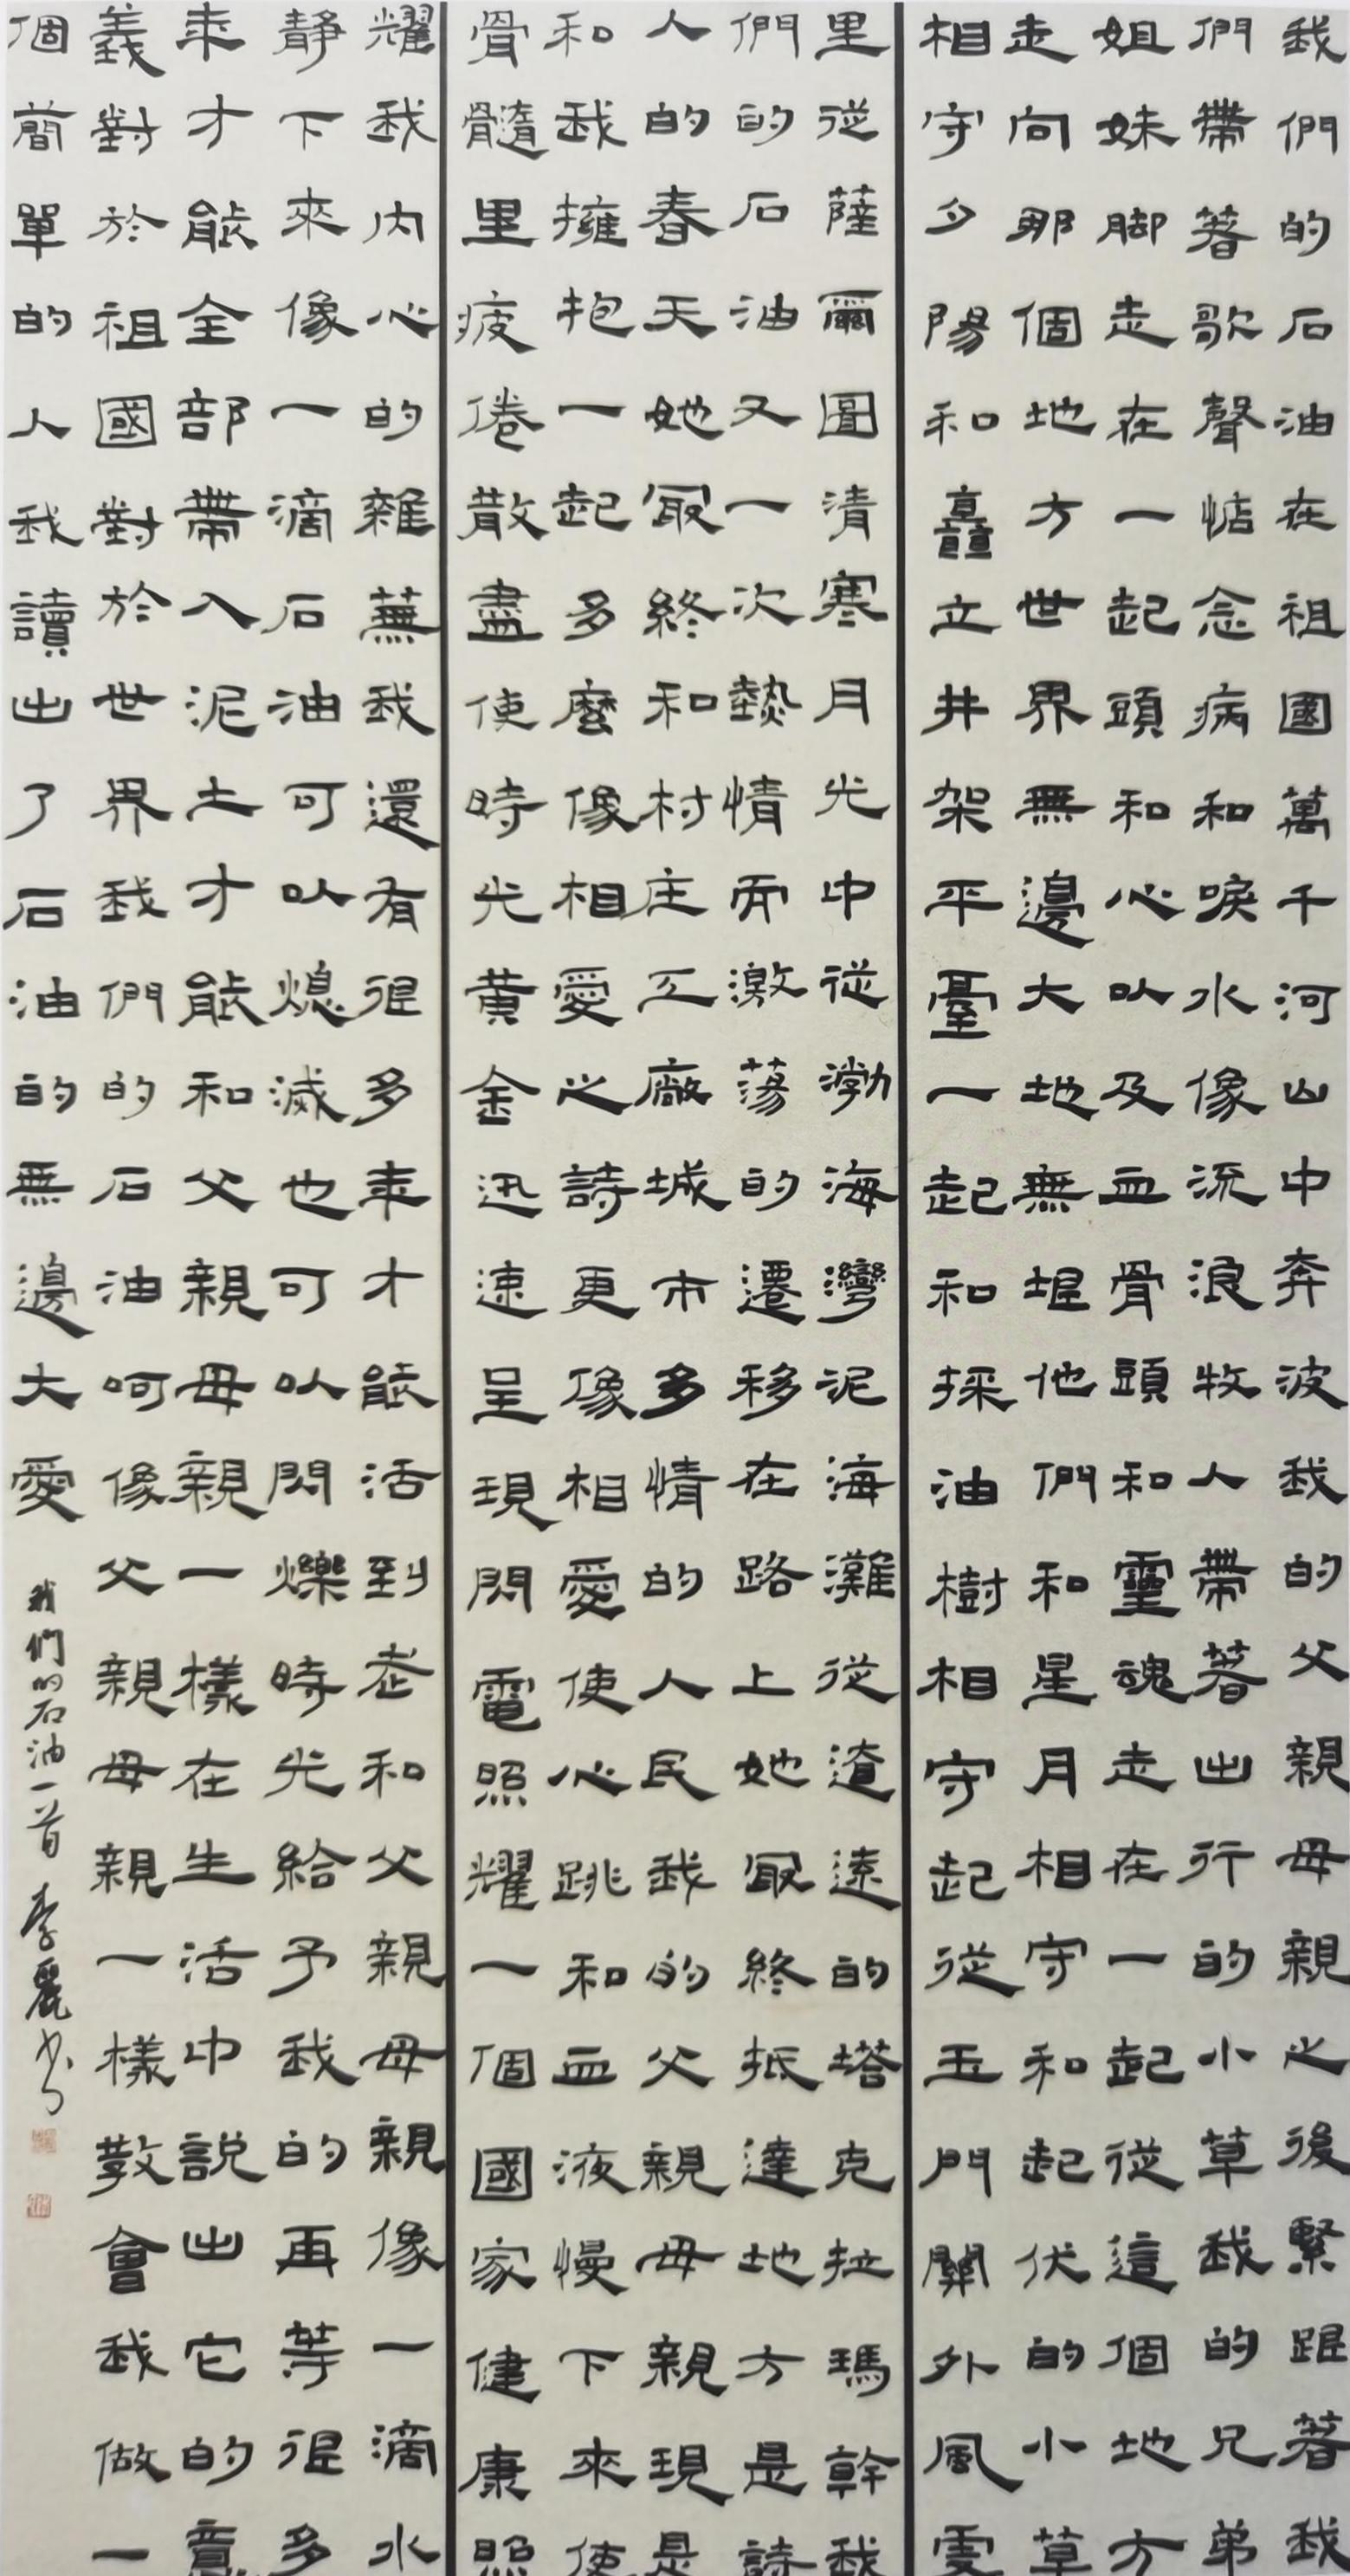 我們的石油在祖國萬千河山中奔波我的父親母親之後緊跟著我
們帶著歌聲惦念病和淚水像流浪牧人帶著出行的小草我的兄弟
姐妹脚走在一起頭和心以及血骨頭和靈魂走在一起從這個地方
走向那個地方世界無邊大地無垠他們和星月相守和起伏的小草
相守夕陽和矗立井架平臺一起和採油樹相守起從玉門關外風雪
里從薩爾圖清寒月光中從渤海灣泥海灘從遼遠的塔克拉瑪幹我
們的石油又一次熱情而激蕩的遷移在路上她最終抵達地方是詩
人的春天她最終和村庄工廠城市多情的人民我的父親母親現是
和我擁抱一起多麼像相愛之詩更像相愛使心跳和血液慢下來使
骨髓里疲倦散盡使時光黄金迅速呈現閃電照耀一個國家健康照
耀我内心的雜蕪我還有很多年才能活到老和父親母親像一滴水
靜下來像一滴石油可以熄滅也可以閃爍時光給予我的再等很多
年才能全部帶入泥土才能和父親母親一樣在生活中説出它的意
義對於祖國對於世界我們的石油呵像父親母親一樣教會我做一
個簡單的人我讀出了石油的無邊大愛
我們的石油一首 李麗書